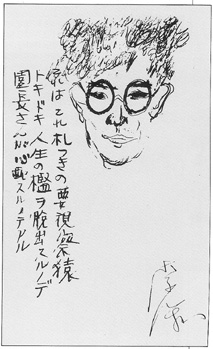 俺はこれ札つきの要視察猿
トキドキ人生の檻ヲ脱出スルノデ
園長さんが心配スルノデアル